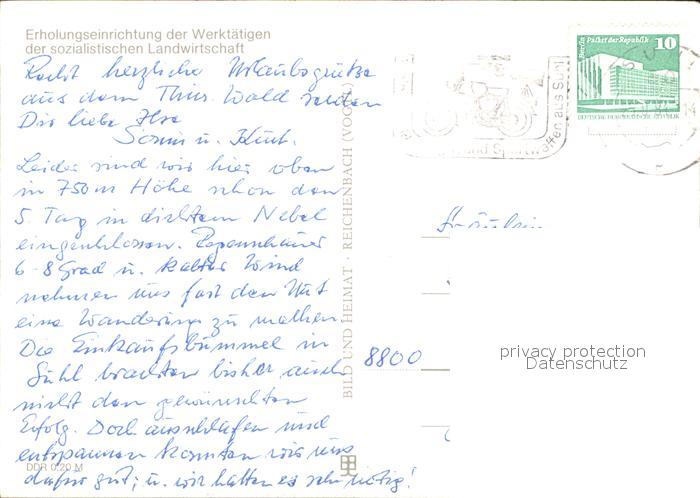 Erholungseinrichtung der Werktätigen
der sozialistischen Landwirtschaft
Recht herzliche Urlaubsgrüße
aus dem Thür. Wald senden
Dir liebe Ilse
u. Kurt.
Leider sind wir hier oben
in 750 m Höhe schon den
5. Tag in dichtem Nebel
eingeschlossen. Regenschauer
6-8 Grad u. kalter Wind
nehmen uns fast den Mut
eine Wanderung zu machen.
Die Einkaufsbummel in
Suhl brachten bisher auch
nicht den gewünschten
Erfolg. Doch ausschlafen und
entspannen konnten wir uns
dafür gut; u. wir hatten es sehr nötig!
DDR 0,20 M
BILD UND HEIMAT · REICHENBACH (VOGTL)
und Sportwaffen aus Suhl
Berlin Palast der Republik
10
DEUTSCHE DEMOKRATISCHE REPUBLIK
Fräulein
8800
privacy protection
Datenschutz